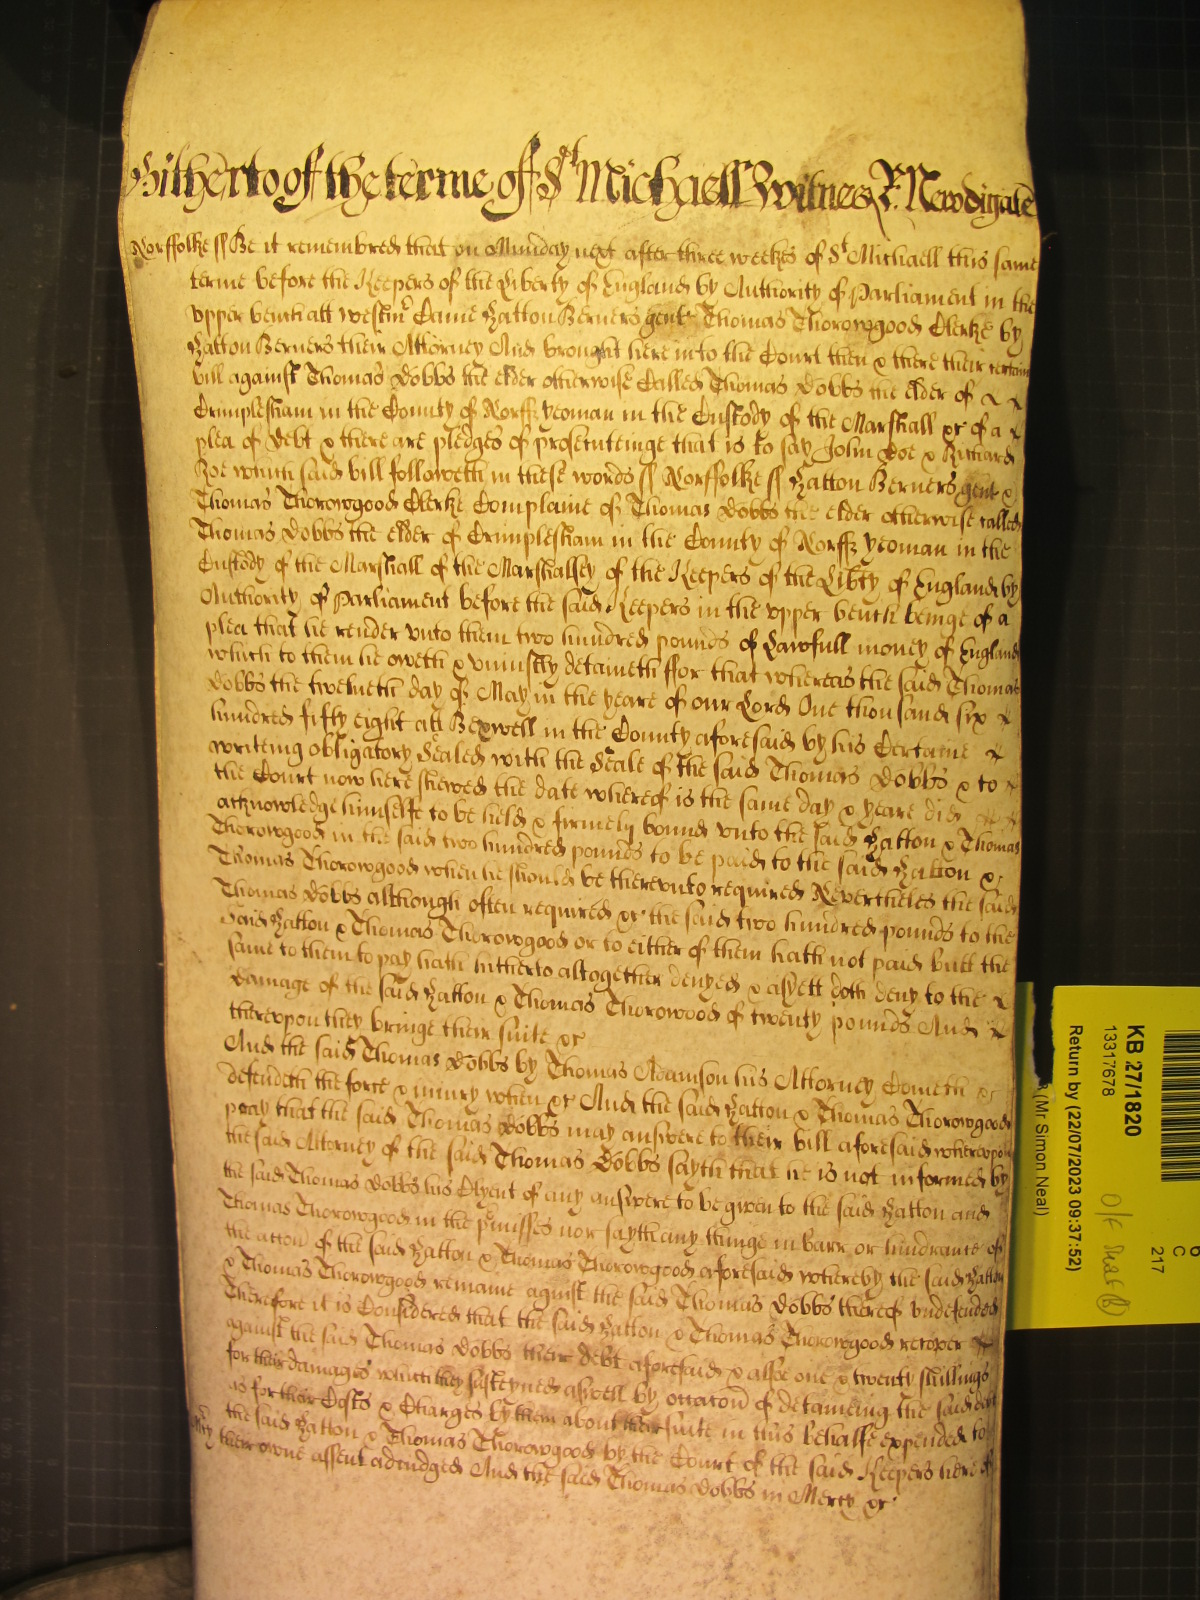 Hitherto of the terme of St Michaell Witnes R: Newdigate
Norffolke ss Be it remembred that on Munday next after three weekes of St Michaell this same
terme before the Keepers of the Liberty of England by Authority of Parliament in the
vpper bench att Westmr Came Hatton Berners gent & Thomas Thorowgood Clerke by
Hatton Berners their Attorney And brought here into the Court then & there their certain
bill against Thomas Dobbs the elder otherwise Called Thomas Dobbs the elder of
Crimplesham in the County of Norff yeoman in the Custody of the Marshall &c of a
plea of debt & there are pledges of prosecuteinge that is to say John Doe & Richard
Roe which said bill followeth in these words ss Norffolke ss Hatton Berners gent &
Thomas Thorowgood Clerke Complaine of Thomas Dobbs the elder otherwise called
Thomas Dobbs the elder of Crimplesham in the County of Norff yeoman in the
Custody of the Marshall of the Marshallsey of the Keepers of the Libty of England by
Authority of Parliament before the said Keepers in the vpper bench beinge of a
plea that he render vnto them two hundred pounds of Lawfull money of England
which to them he oweth & vniustly detaineth ffor that whereas the said Thomas
Dobbs the twelveth day of May in the yeare of our Lord One thousand six
hundred fifty eight att Bexwell in the County aforesaid by his Certaine
writeing obligatory Sealed with the Seale of the said Thomas Dobbs & to
the Court now here shewed the date whereof is the same day & yeare did
acknowledge himselfe to be held & firmely bound vnto the said Hatton & Thomas
Thorowgood in the said two hundred pounds to be paid to the said Hatton &
Thomas Thorowgood when he should be therevnto required Neverthelees the said
Thomas Dobbs although often required &c the said two hundred pounds to the
said Hatton & Thomas Thorowgood or to either of them hath not paid butt the
same to them to pay hath hitherto altogether denyed & as yett doth deny to the
damage of the said Hatton & Thomas Thorowood of twenty pounds And
therevpon they bringe their suite &c
And the said Thomas Dobbs by Thomas Adamson his Attorney Cometh &
defendeth the force & iniury when &c And the said Hatton & Thomas Thorowgood
pray that the said Thomas Dobbs may answere to their bill aforesaid wherevpon
the said Attorney of the said Thomas Dobbs sayth that he is not informed by
the said Thomas Dobbs his Clyent of any answere to be given to the said Hatton and
Thomas Thorowgood in the pmisses nor sayth any thinge in barr or hindrance of
the accon of the said Hatton & Thomas Thorowgood aforesaid whereby the said Hatton
& Thomas Thorowgood remaine against the said Thomas Dobbs thereof vndefended
Therefore it is Considered that the said Hatton & Thomas Thorowgood recover
against the said Thomas Dobbs their debt aforesaid & alsoe one & twenty shillings
for their damages which they susteyned aswell by occacon of detaineing the said debt
as for their Costs & Charges by them about their suite in this behalfe expended to
the said Hatton & Thomas Thorowgood by the Court of the said Keepers here of
Mcy their owne assent adiudged And the said Thomas Dobbs in Mercy &c
KB 27/1820
13317678
Return by (22/07/2023 09:37:52)
(Mr. Simon Neal)
C
217